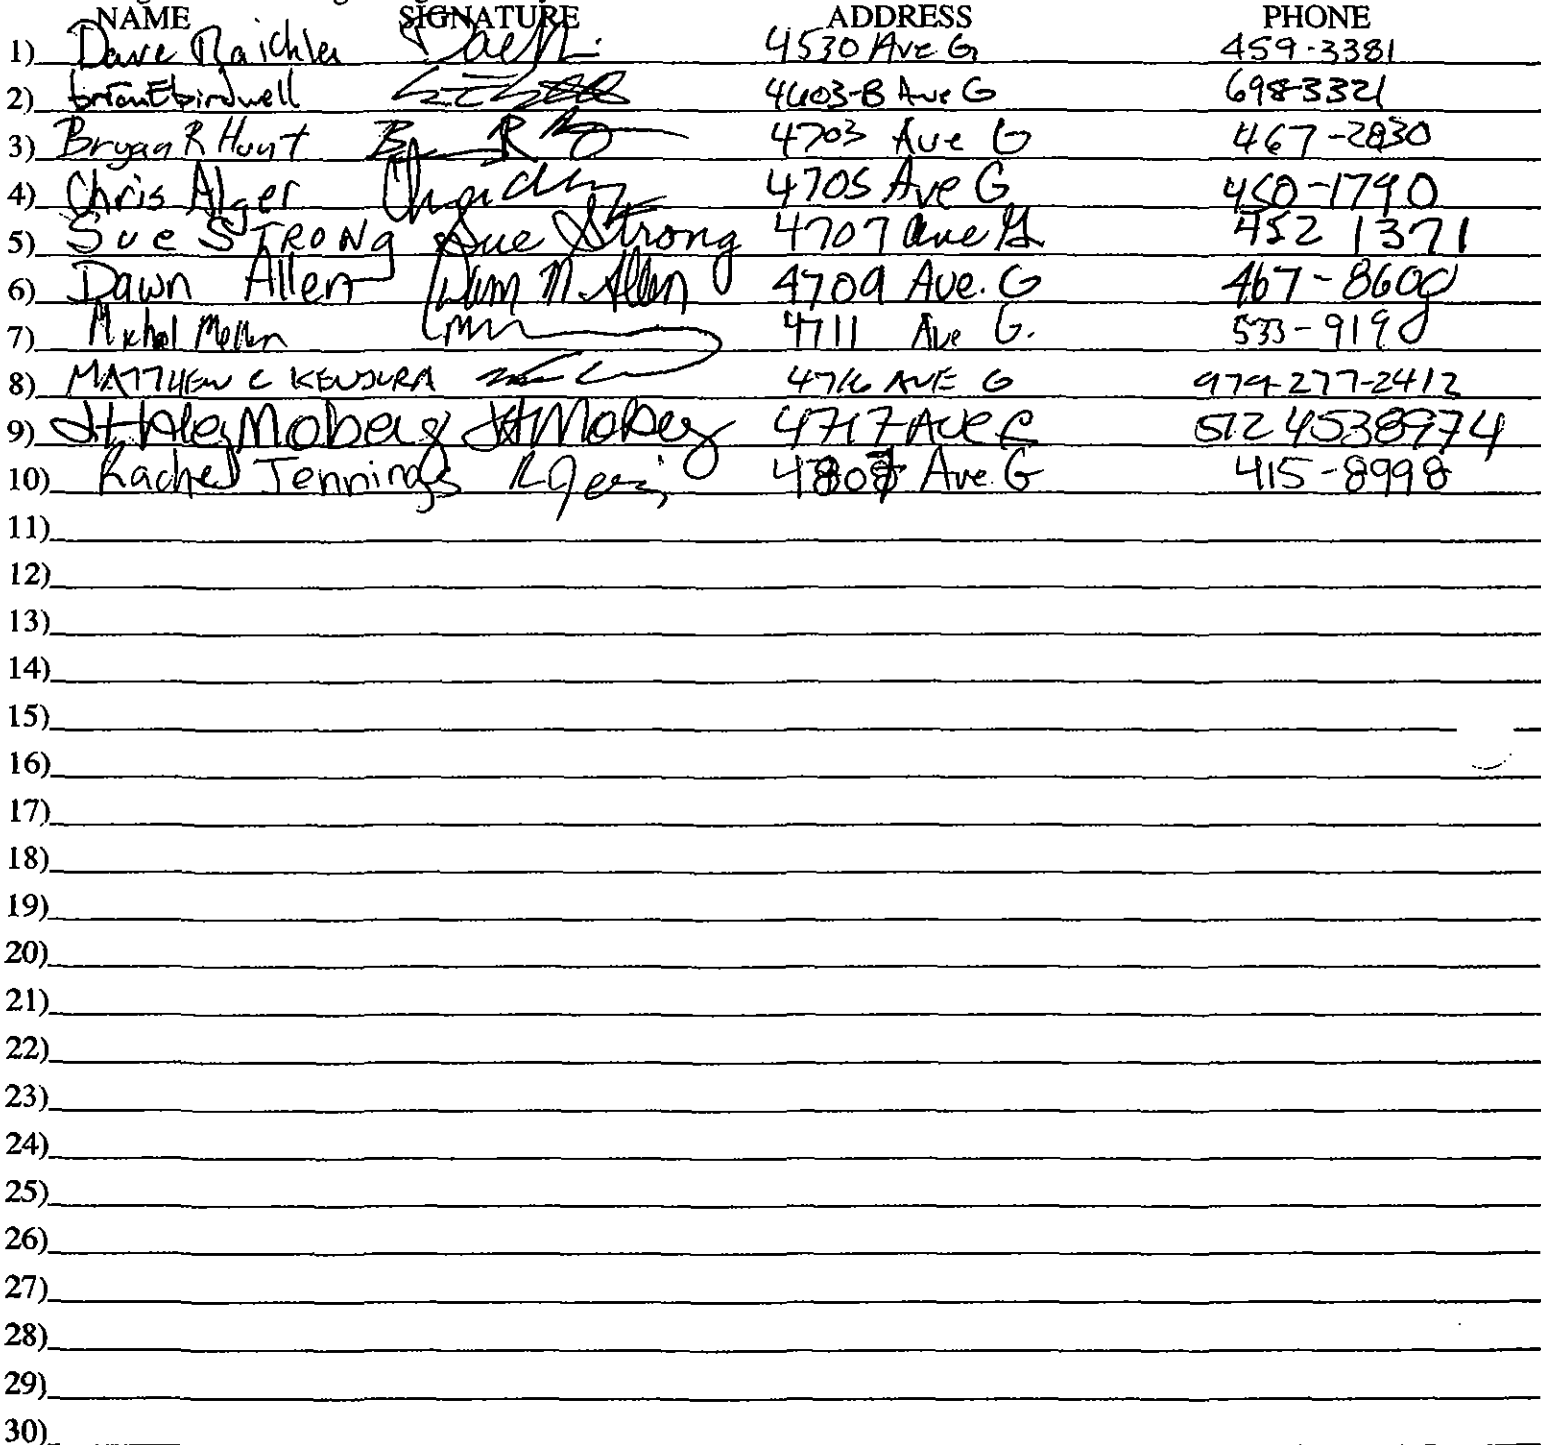 NAME SIGNATURE ADDRESS PHONE
1) Dave Raichle 4530 Ave G 459-3381
2) brian E birdwell 4603-B Ave G 698-3321
3) Bryan R Hunt B R 4703 Ave G 467-2830
4) Chris Alger 4705 Ave G 450-1790
5) Sue STRONG Sue Strong 4707 Ave G 452 1371
6) Dawn Allen Dawn M. Allen 4709 Ave. G 467-8600
7) 4711 Ave G. 533-9190
8) MATTHEW C KENJURA 4716 AVE G 979-277-2412
9) Moberg 4717 Ave G 512 4538974
10) Rachel Jennings Ave. G 415-8998
11)
12)
13)
14)
15)
16)
17)
18)
19)
20)
21)
22)
23)
24)
25)
26)
27)
28)
29)
30)